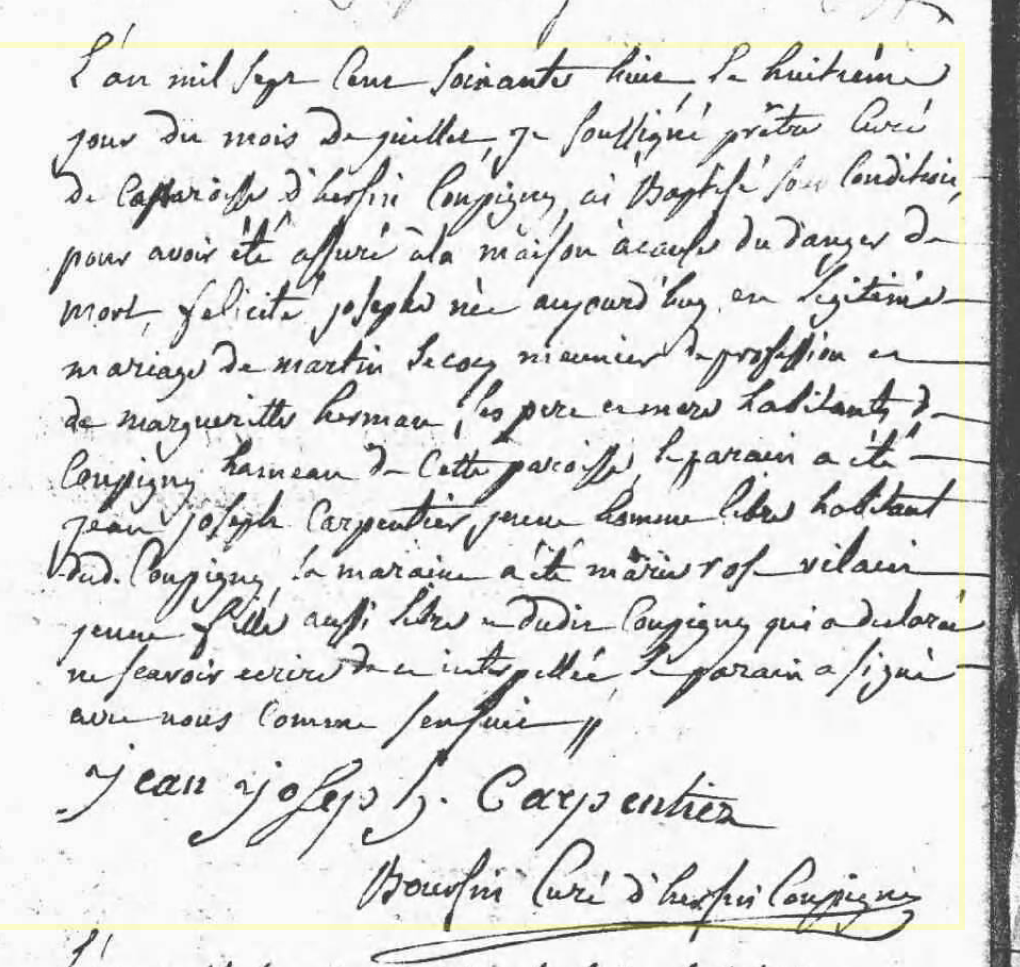 L'an mil sept cent soixante huit le huitième
jour du mois de juillet, je soussigné prêtre Curé
de la paroisse d'hersin Coupigny, ai Baptisé sous Condition,
pour avoir été assuré à la maison à cause du danger de
mort, felicité josephe née aujourd'huy en légitime
mariage de martin Lecocq meunier de profession et
de margueritte herman, ses pere et mere habitants de
Coupigny hameau de Cette paroisse, le parain a été
jean joseph Carpentier, jeune homme libre habitant
dud. Coupigny, la maraine a été marie rose vilain
jeune fille aussi libre dudit Coupigny qui a declaré
ne scavoir ecrire de ce interpellée le parain a signé
avec nous comme s'ensuit //
jean joseph. Carpentier
Boursin Curé d'hersin Coupigny
L'